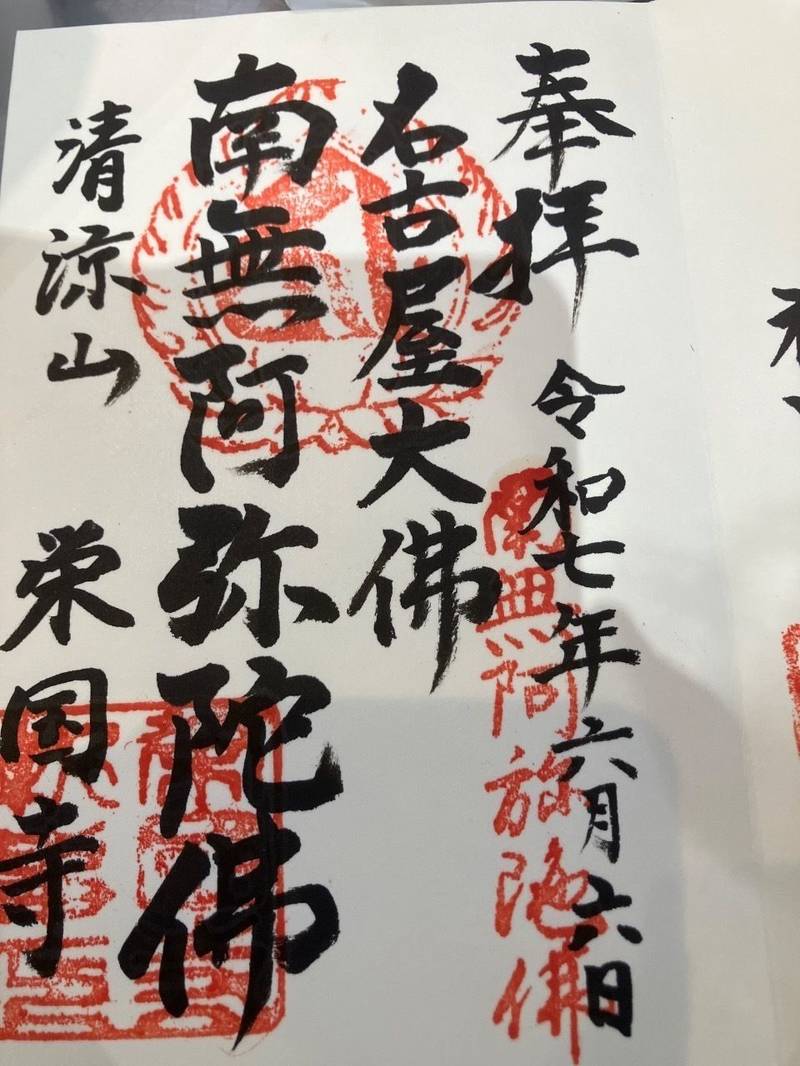 奉拝 令和七年六月六日
南無阿弥陀佛
名古屋大佛
南無阿弥陀佛
清涼山 栄国寺